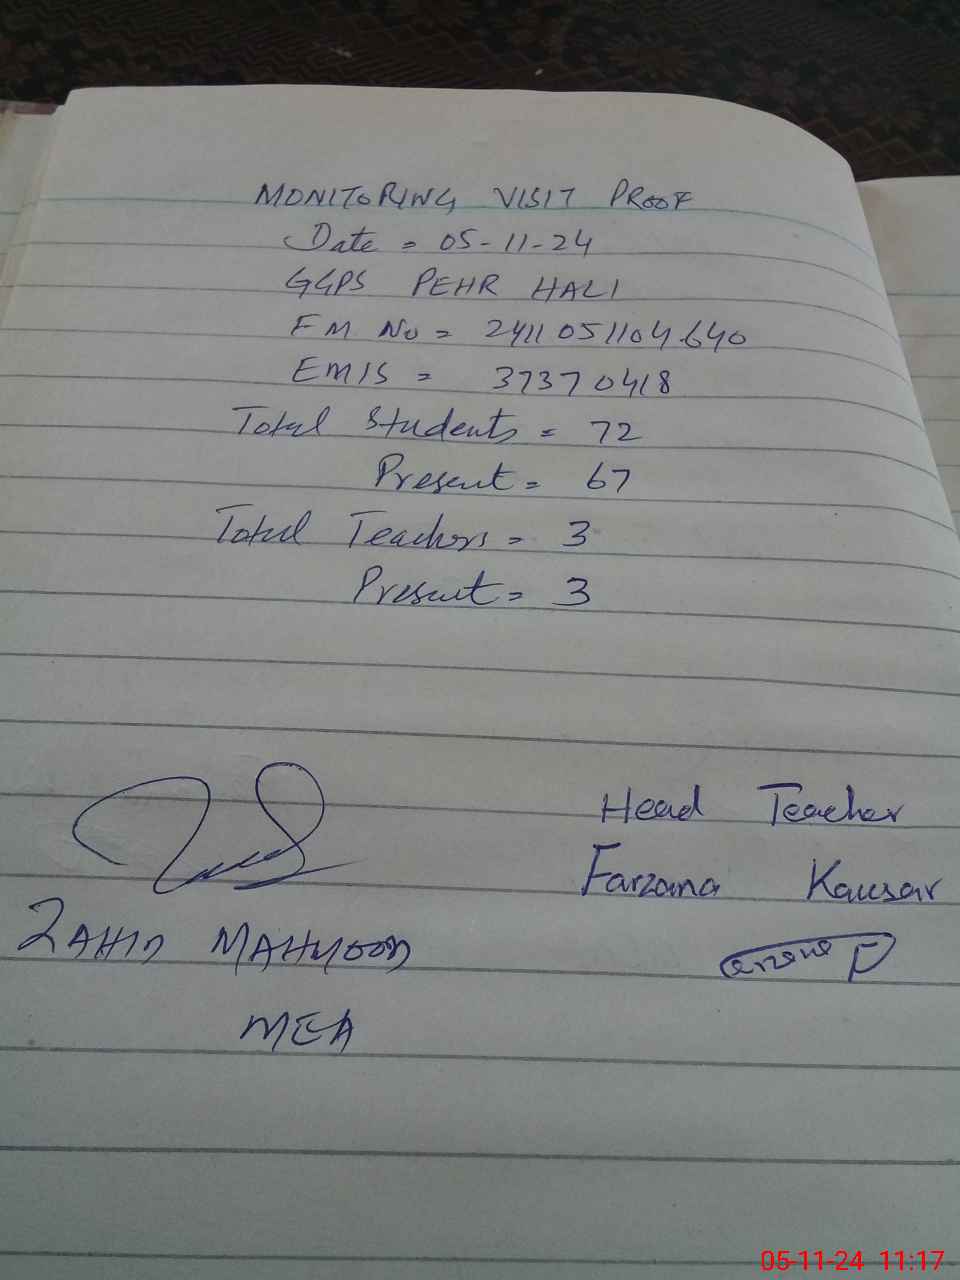 MONITORING VISIT PROOF
Date = 05-11-24
GGPS PEHR HALI
FM No = 2411051104640
EMIS = 37370418
Total Students = 72
Present = 67
Total Teachers = 3
Present = 3
Head Teacher
Farzana Kausar
ZAHID MAHMOOD
MEA
05-11-24 11:17